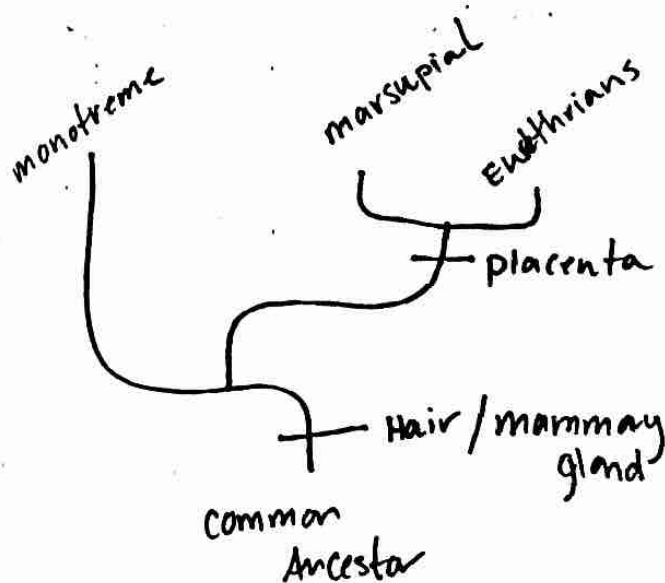 monotreme
marsupial
Euethrians
placenta
Hair / mammay
gland
common
Ancestor